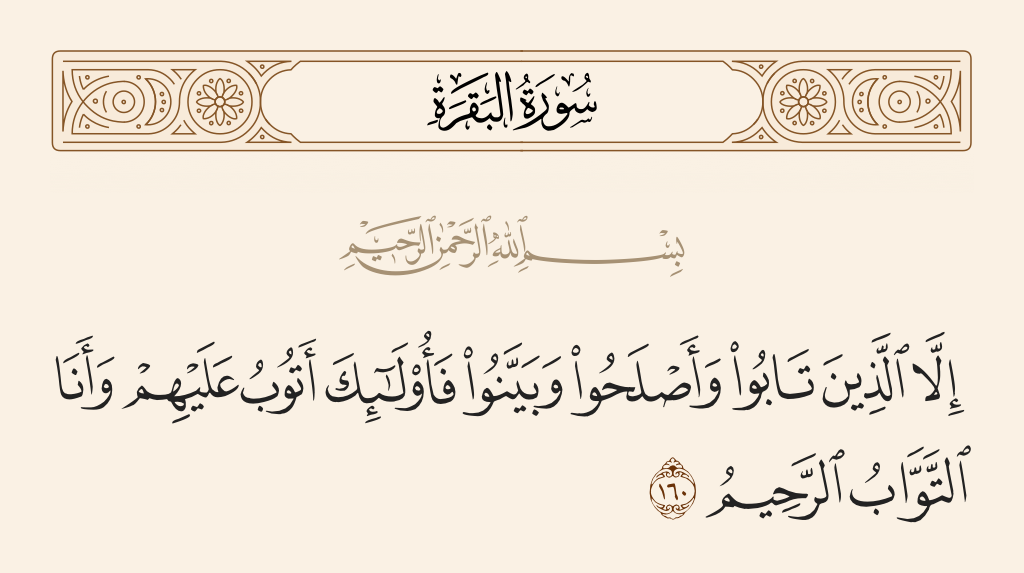 سُورَةُ البَقَرَةِ
بِسْمِ ٱللَّهِ ٱلرَّحْمَٰنِ ٱلرَّحِيمِ
إِلَّا ٱلَّذِينَ تَابُوا۟ وَأَصْلَحُوا۟ وَبَيَّنُوا۟ فَأُو۟لَـٰٓئِكَ أَتُوبُ عَلَيْهِمْ وَأَنَا
ٱلتَّوَّابُ ٱلرَّحِيمُ ١٦٠